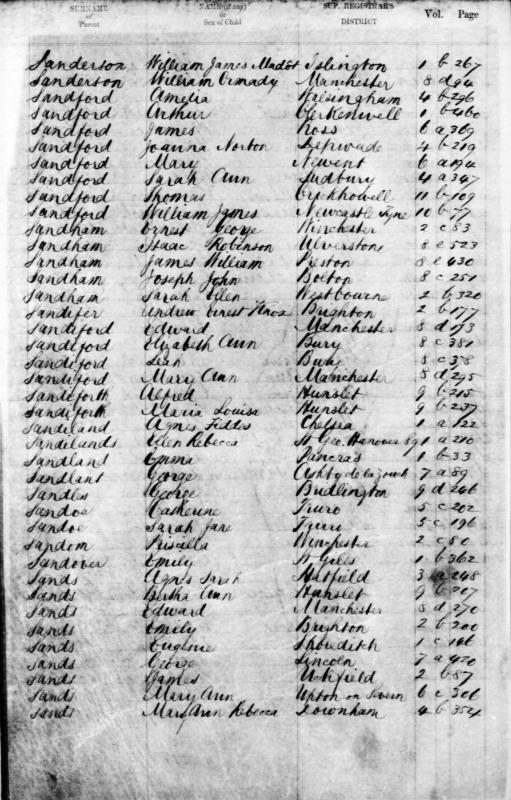 SURNAME of Parent NAME (if any) or Sex of Child SUP. REGISTRAR'S DISTRICT Vol. Page
Sanderson William James Islington 1 b 267
Sanderson William Ormady Manchester 8 d 94
Sandford Amelia Walsingham 4 b 296
Sandford Arthur Clerkenwell 1 b 460
Sandford James Ross 6 a 369
Sandford Joanna Norton Depwade 4 b 219
Sandford Mary Newent 6 a 194
Sandford Sarah Ann Sudbury 4 a 347
Sandford Thomas Crickhowell 11 b 109
Sandford William James Newcastle Tyne 10 b 77
Sandham Ernest George Winchester 2 c 83
Sandham Isaac Robinson Ulverstone 8 e 523
Sandham James William Preston 8 e 430
Sandham Joseph John Bolton 8 c 251
Sandham Sarah Ellen Westbourne 2 b 320
Sandifer Andrew Ernest Brighton 2 b 177
Sandiford Edward Manchester 8 d 173
Sandiford Elizabeth Ann Bury 8 c 381
Sandiford Bury 8 c 378
Sandiford Mary Ann Manchester 8 d 295
Sandiforth Alfred Hunslet 9 b 215
Sandiforth Maria Louisa Hunslet 9 b 237
Sandiland Agnes Fiddes Chelsea 1 a 122
Sandilands Ellen Rebecca St Geo. Hanover Sq 1 a 210
Sandland Emma Pancras 1 b 33
Sandlant George Ashby de la Zouch 7 a 89
Sandles George Bridlington 9 d 246
Sandoe Catherine Truro 5 c 202
Sandoe Sarah Jane Truro 5 c 196
Sandom Priscilla Winchester 2 c 80
Sandover Emily St Giles 1 b 362
Sands Agnes Sarah Hatfield 3 a 248
Sands Bertha Ann Hunslet 9 b 207
Sands Edward Manchester 8 d 270
Sands Emily Brighton 2 b 200
Sands Eugenie Shoreditch 1 c 146
Sands George Lincoln 7 a 420
Sands James Uckfield 2 b 57
Sands Mary Ann Upton on Severn 6 c 306
Sands Mary Ann Rebecca Downham 4 b 354